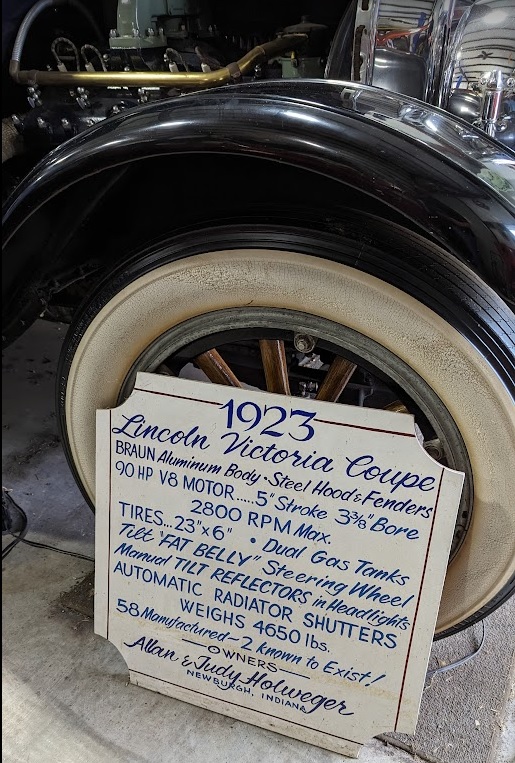 1923
Lincoln Victoria Coupe
BRAUN Aluminum Body • Steel Hood & Fenders
90 HP V8 MOTOR.....5" Stroke 3⅜" Bore
2800 RPM Max.
TIRES...23"x6" • Dual Gas Tanks
Tilt "FAT BELLY" Steering Wheel
Manual TILT REFLECTORS in Headlights
AUTOMATIC RADIATOR SHUTTERS
WEIGHS 4650 lbs.
58 Manufactured - 2 known to Exist!
OWNERS
Allan & Judy Holweger
NEWBURGH, INDIANA